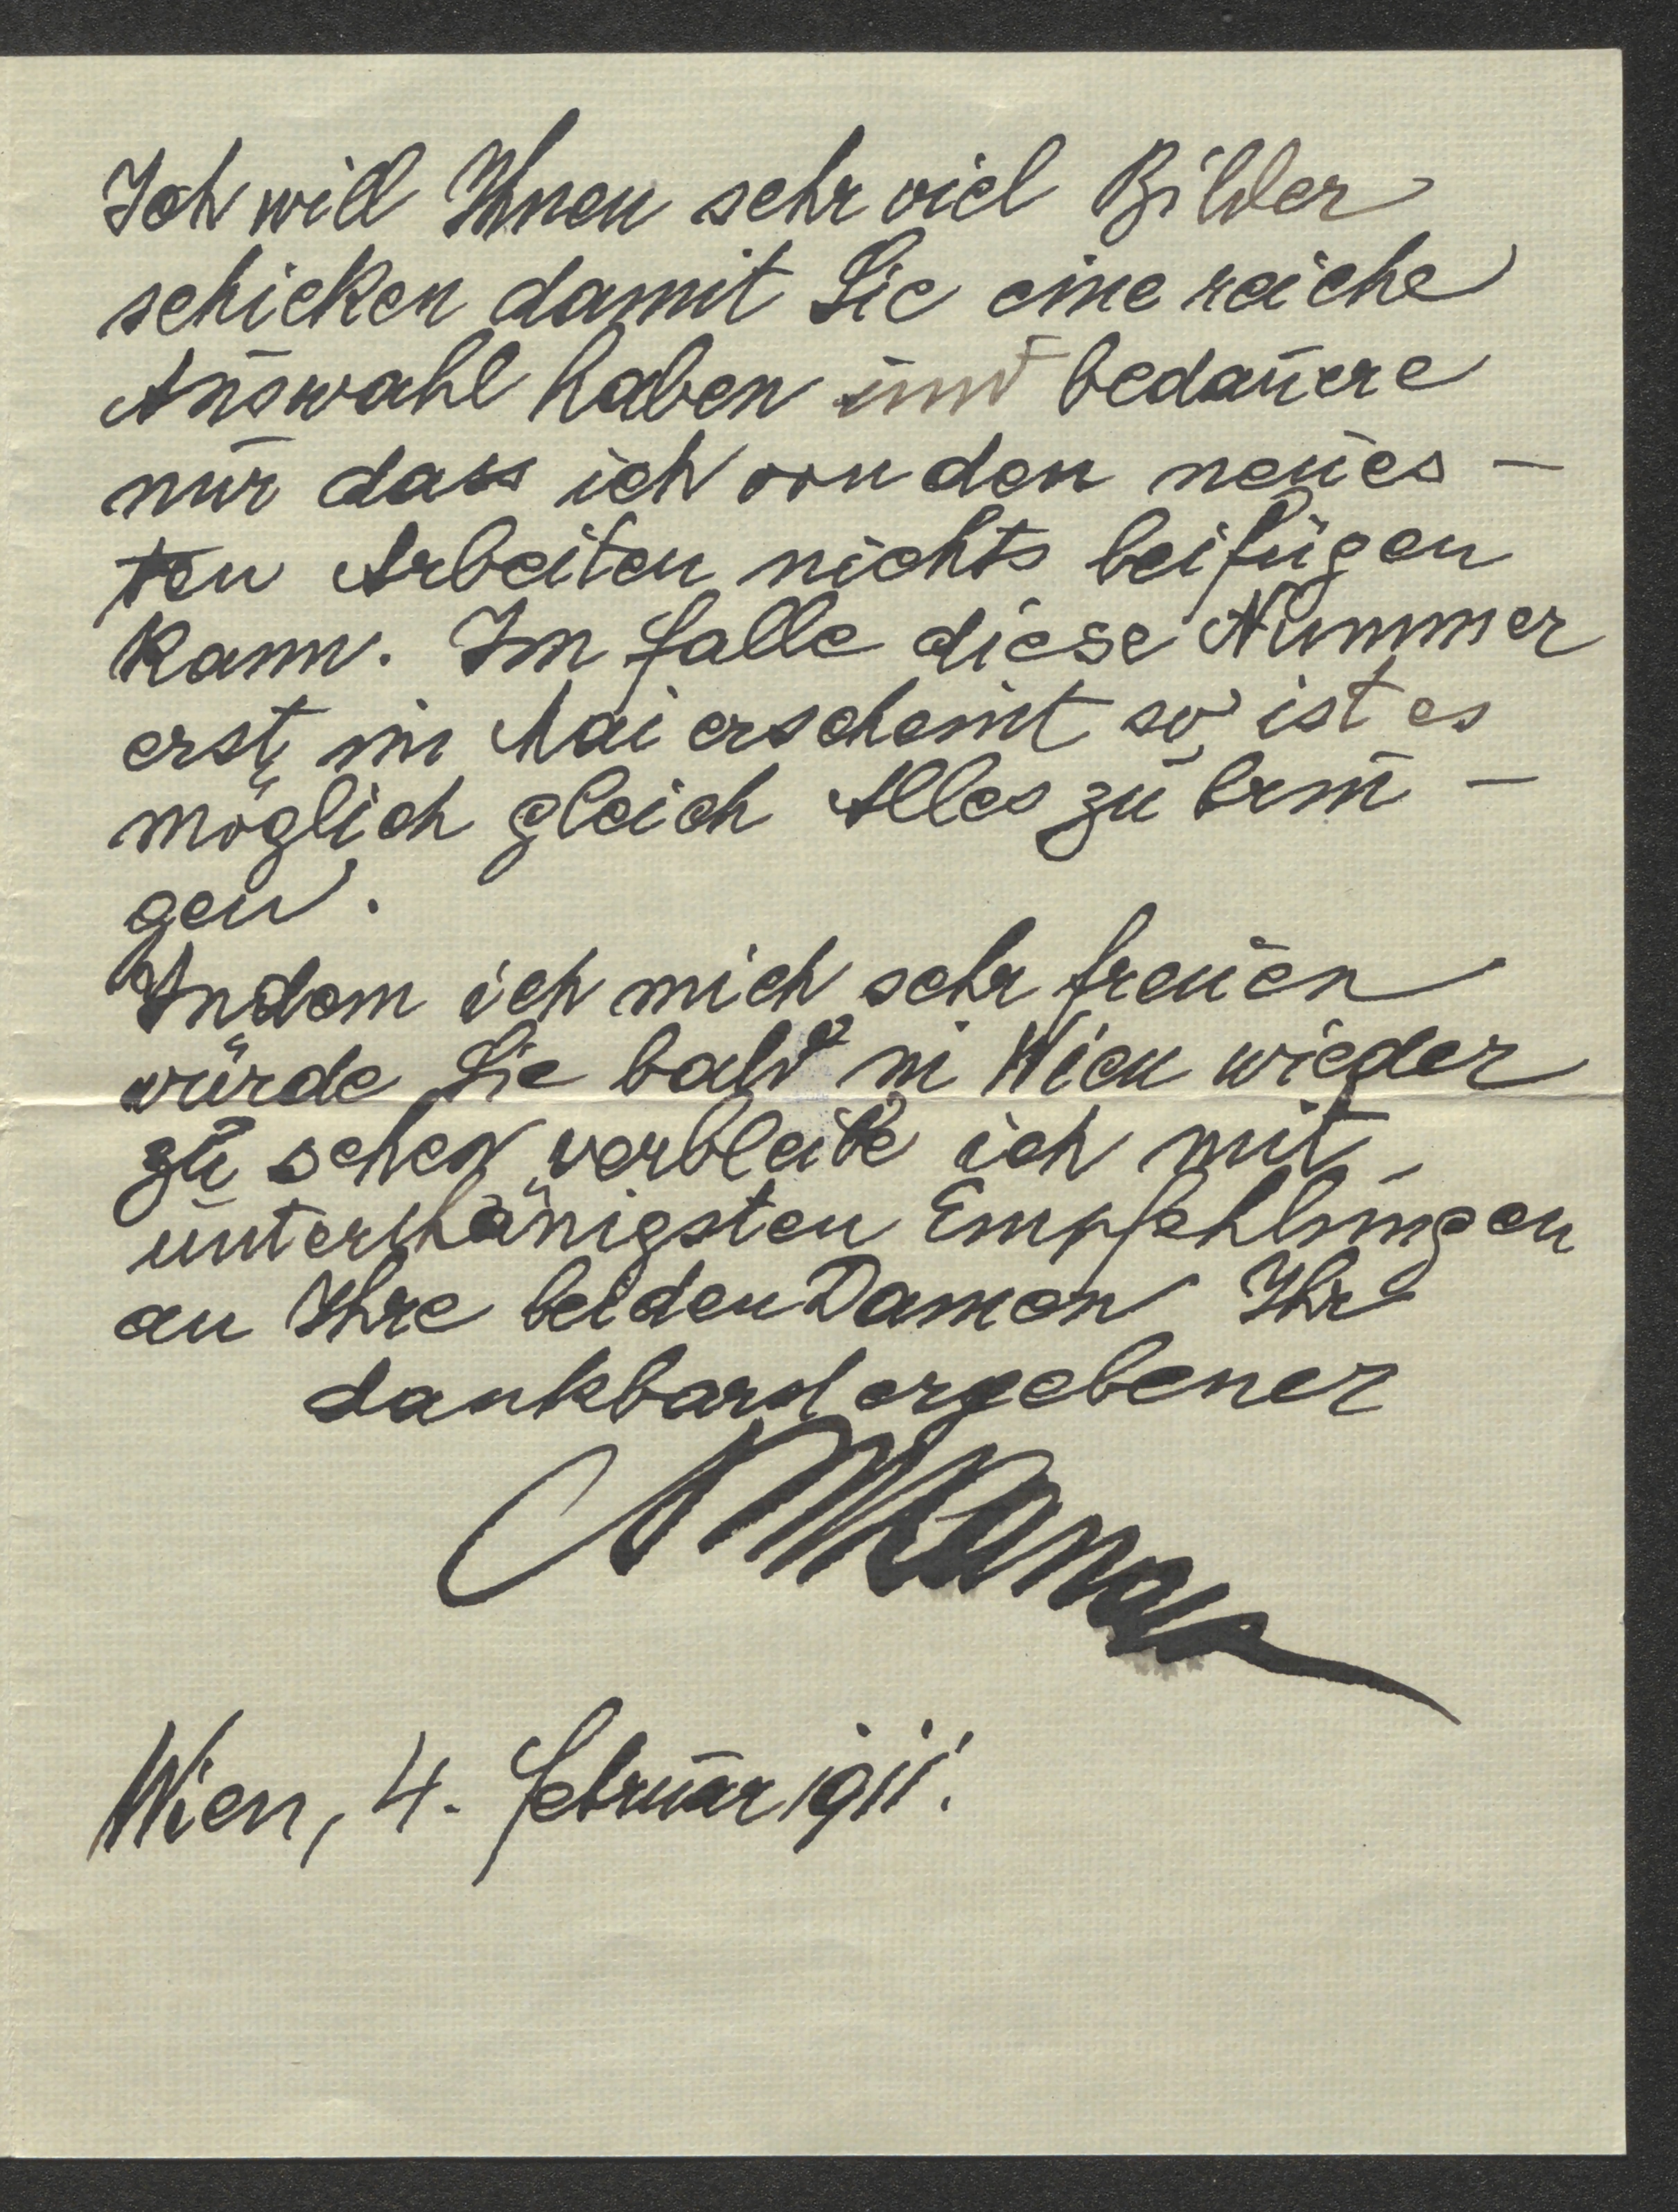 Ich will Ihnen sehr viel Bilder
schicken damit Sie eine reiche
Auswahl haben und bedauere
nur dass ich von den neues-
ten Arbeiten nichts beifügen
kann. Im falle diese Nummer
erst im Mai erscheint so ist es
möglich gleich Alles zu brin-
gen.
Indem ich mich sehr freuen
würde Sie bald in Wien wieder
zu sehen verbleibe ich mit
unterthänigsten Empfehlungen
an Ihre beiden Damen Ihr
dankbarst ergebener
Wien, 4. februar 1911.